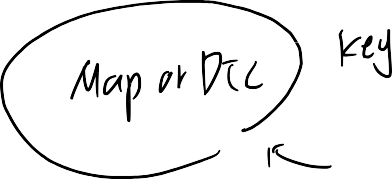 Map or Dic
key